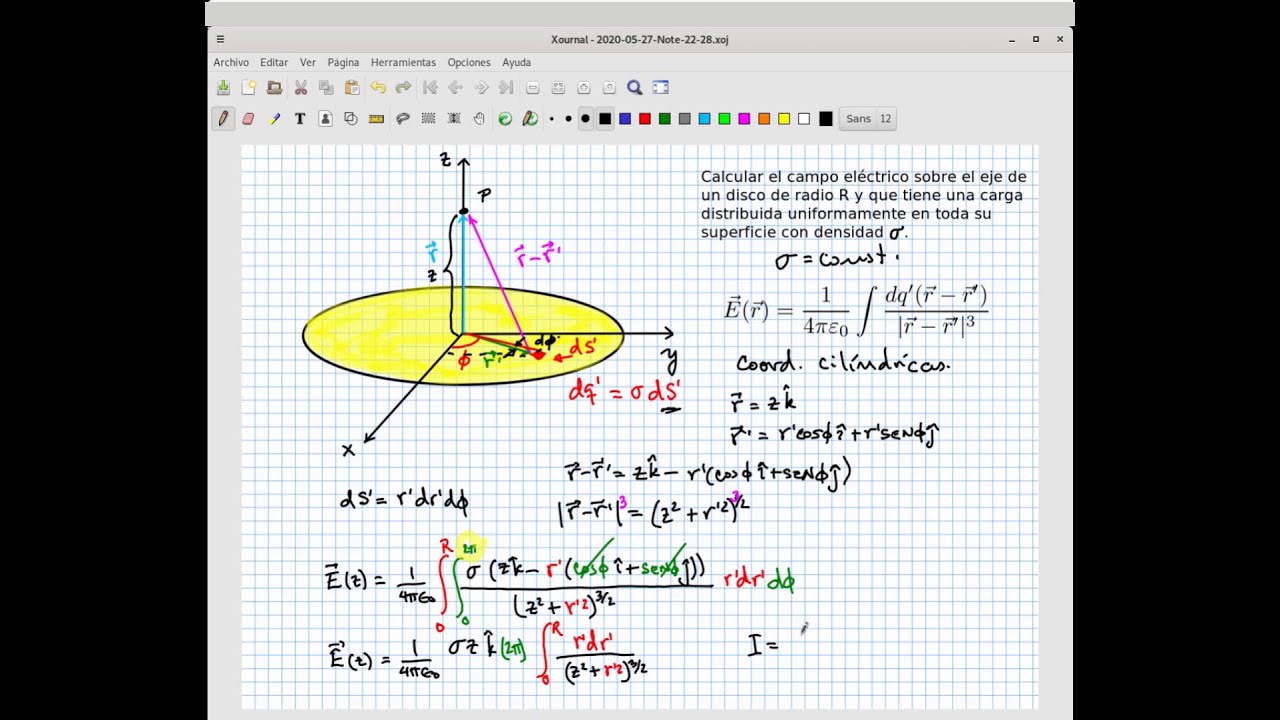 Xournal - 2020-05-27-Note-22-28.xoj
Archivo Editar Ver Página Herramientas Opciones Ayuda
T Sans 12
z
P
r⃗
z
r⃗-r⃗'
Calcular el campo eléctrico sobre el eje de
un disco de radio R y que tiene una carga
distribuida uniformemente en toda su
superficie con densidad σ.
σ = const.
E⃗(r⃗) = 1/4πε₀ ∫ dq'(r⃗ − r⃗')/|r⃗ − r⃗'|³
dφ
φ r⃗' dS'
y
dq' = σ dS'
x
Coord. cilíndricas.
r⃗ = z k̂
r⃗' = r'cosφ î + r'senφ ĵ
r⃗-r⃗' = z k̂ - r'(cosφ î + senφ ĵ)
dS' = r'dr'dφ
|r⃗-r⃗'|³ = (z² + r'²)^3/2
E⃗(z) = 1/4πε₀ ∫₀^R ∫₀^2π σ(z k̂ - r'(cosφ î + senφ ĵ))/(z² + r'²)^3/2 r'dr'dφ
E⃗(z) = 1/4πε₀ σz k̂ (2π) ∫₀^R r'dr'/(z² + r'²)^3/2
I =